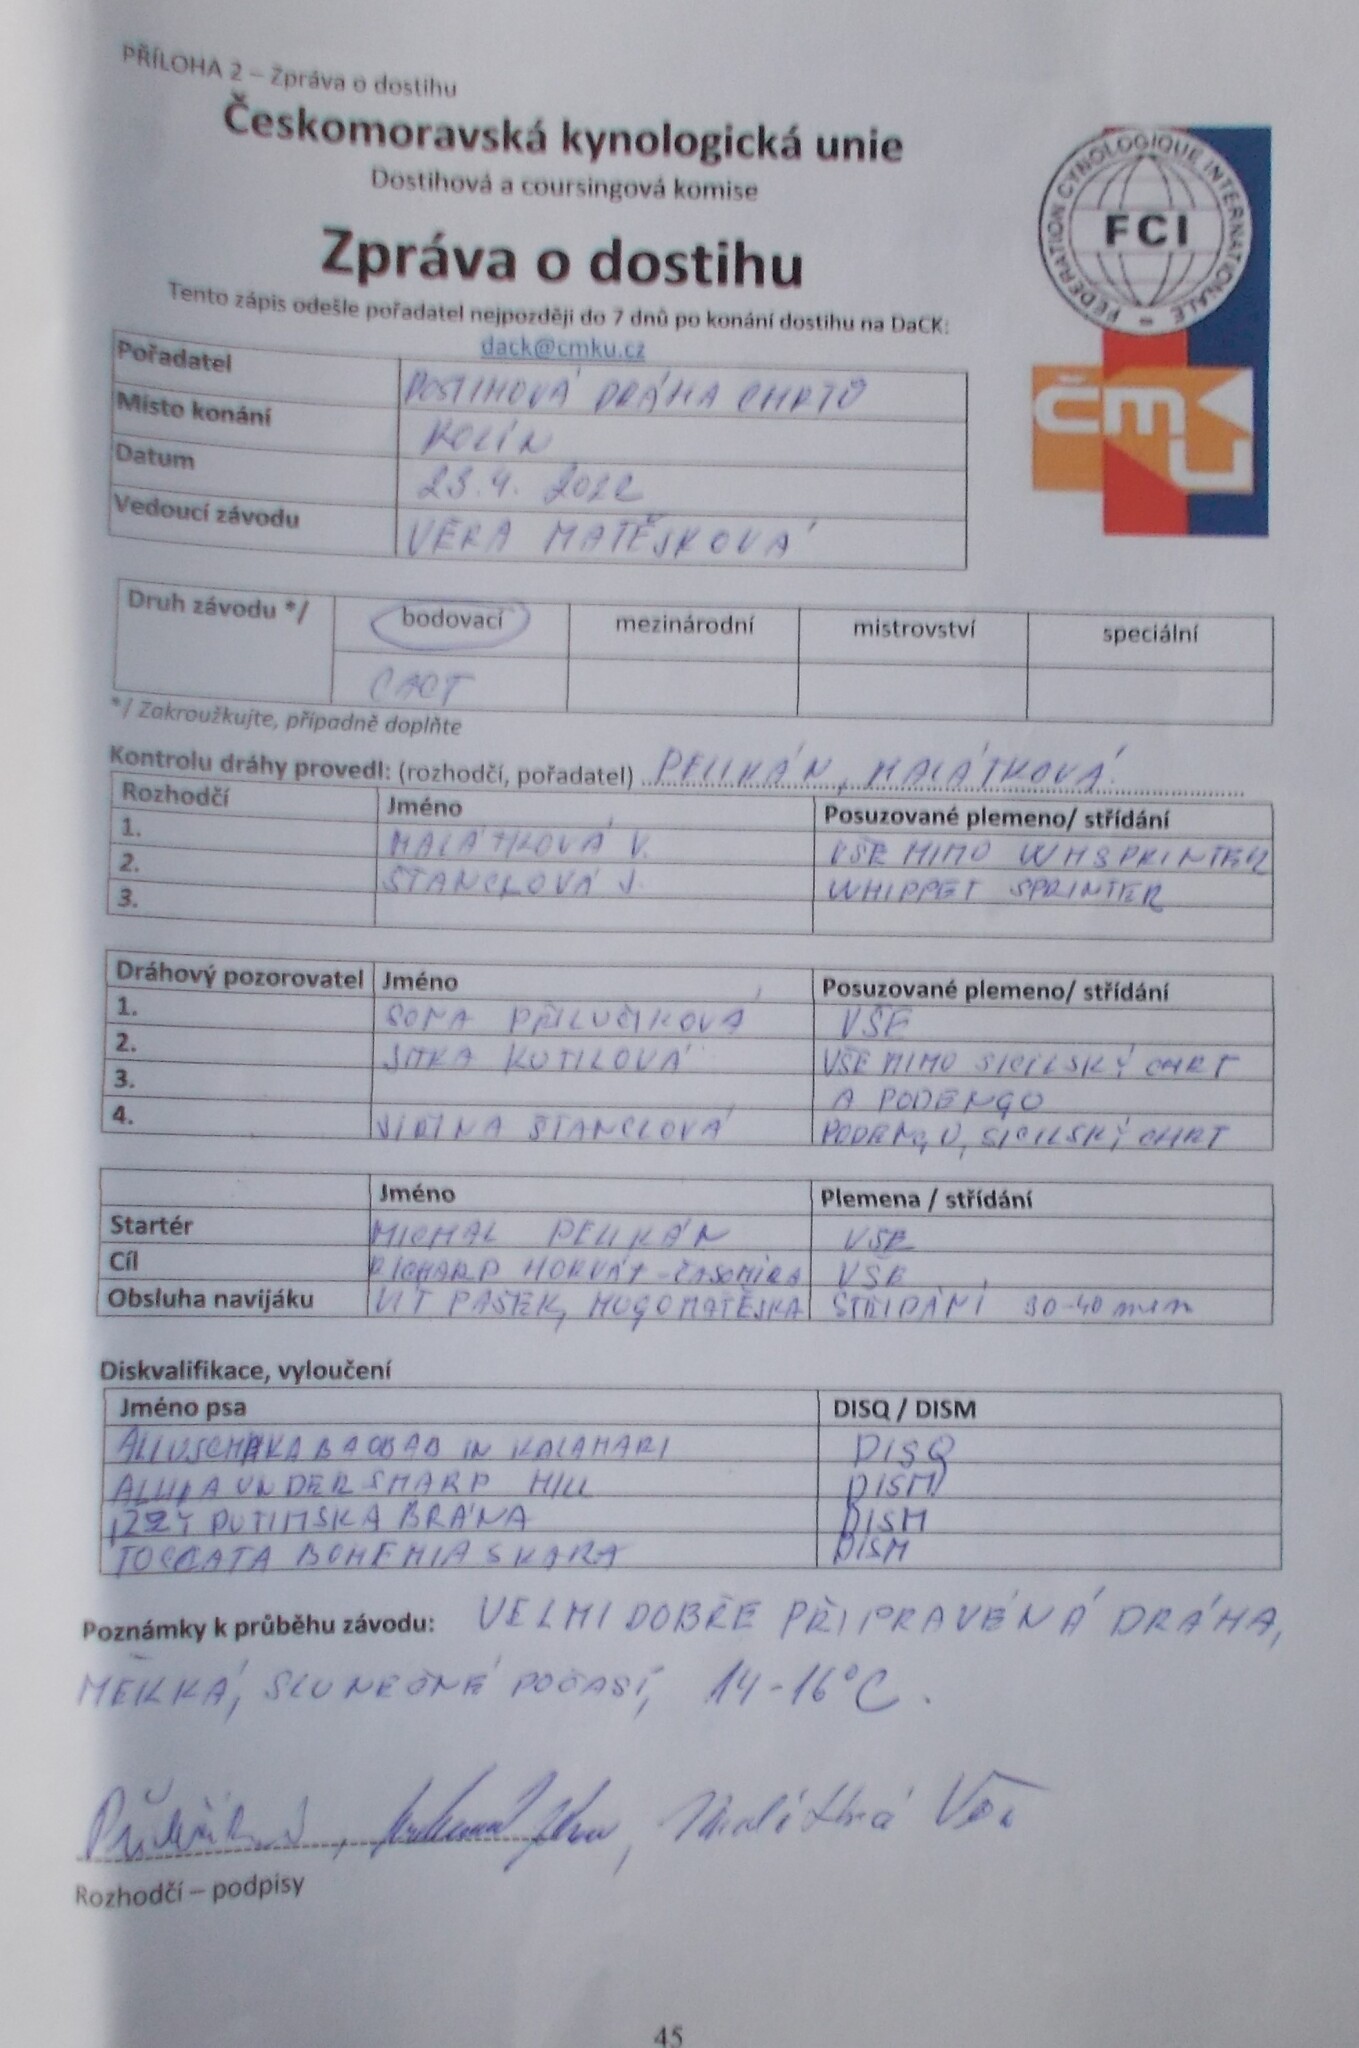 PŘÍLOHA 2 – Zpráva o dostihu
Českomoravská kynologická unie
Dostihová a coursingová komise
Zpráva o dostihu
Tento zápis odešle pořadatel nejpozději do 7 dnů po konání dostihu na DaCK:
dack@cmku.cz
FEDERATION CYNOLOGIQUE INTERNATIONALE
FCI
ČMKU
Pořadatel DOSTIHOVÁ DRÁHA CHRTŮ
Místo konání KOLÍN
Datum 23.4. 2022
Vedoucí závodu VĚRA MATĚJKOVÁ
Druh závodu */ bodovací mezinárodní mistrovství speciální
CACT
*/ Zakroužkujte, případně doplňte
Kontrolu dráhy provedl: (rozhodčí, pořadatel) PELIKÁN, MALÁTKOVÁ
Rozhodčí Jméno Posuzované plemeno/ střídání
1. MALÁTKOVÁ V. VŠE MIMO WHSPRINTER
2. ŠTANCLOVÁ J. WHIPPET SPRINTER
3.
Dráhový pozorovatel Jméno Posuzované plemeno/ střídání
1. PŘÍLUČÍKOVÁ VŠE
2. JITKA KUTILOVÁ VŠE MIMO SICILSKÝ CHRT
3. A PODENGO
4. JIŘINA ŠTANCLOVÁ PODENGO, SICILSKÝ CHRT
Jméno Plemena / střídání
Startér MICHAL PELIKÁN VŠE
Cíl RICHARD HORVÁT - ČASOMÍRA VŠE
Obsluha navijáku VÍT PAŠEK, HUGO MATĚJKA STŘÍDÁNÍ 30-40 min
Diskvalifikace, vyloučení
Jméno psa DISQ / DISM
ALLUSCHKA BAOBAB IN KALAHARI DISQ
UNDER SHARP HILL DISM
PUTIMSKÁ BRÁNA DISM
TOCCATA BOHEMIA SKARA DISM
Poznámky k průběhu závodu: VELMI DOBŘE PŘIPRAVENÁ DRÁHA,
MĚKKÁ, SLUNEČNÉ POČASÍ, 14-16°C.
Rozhodčí – podpisy
45